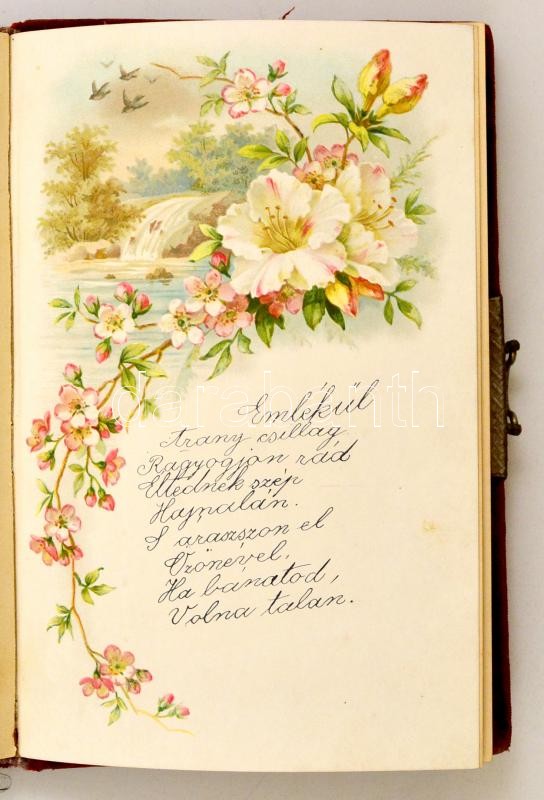 Emlékűl
Arany csillag
Ragyogjon rád
Élted​nek szép
Hajnalán.
S áraszszon el
Özönével,
Ha bánatod,
Volna talán.
darabanth